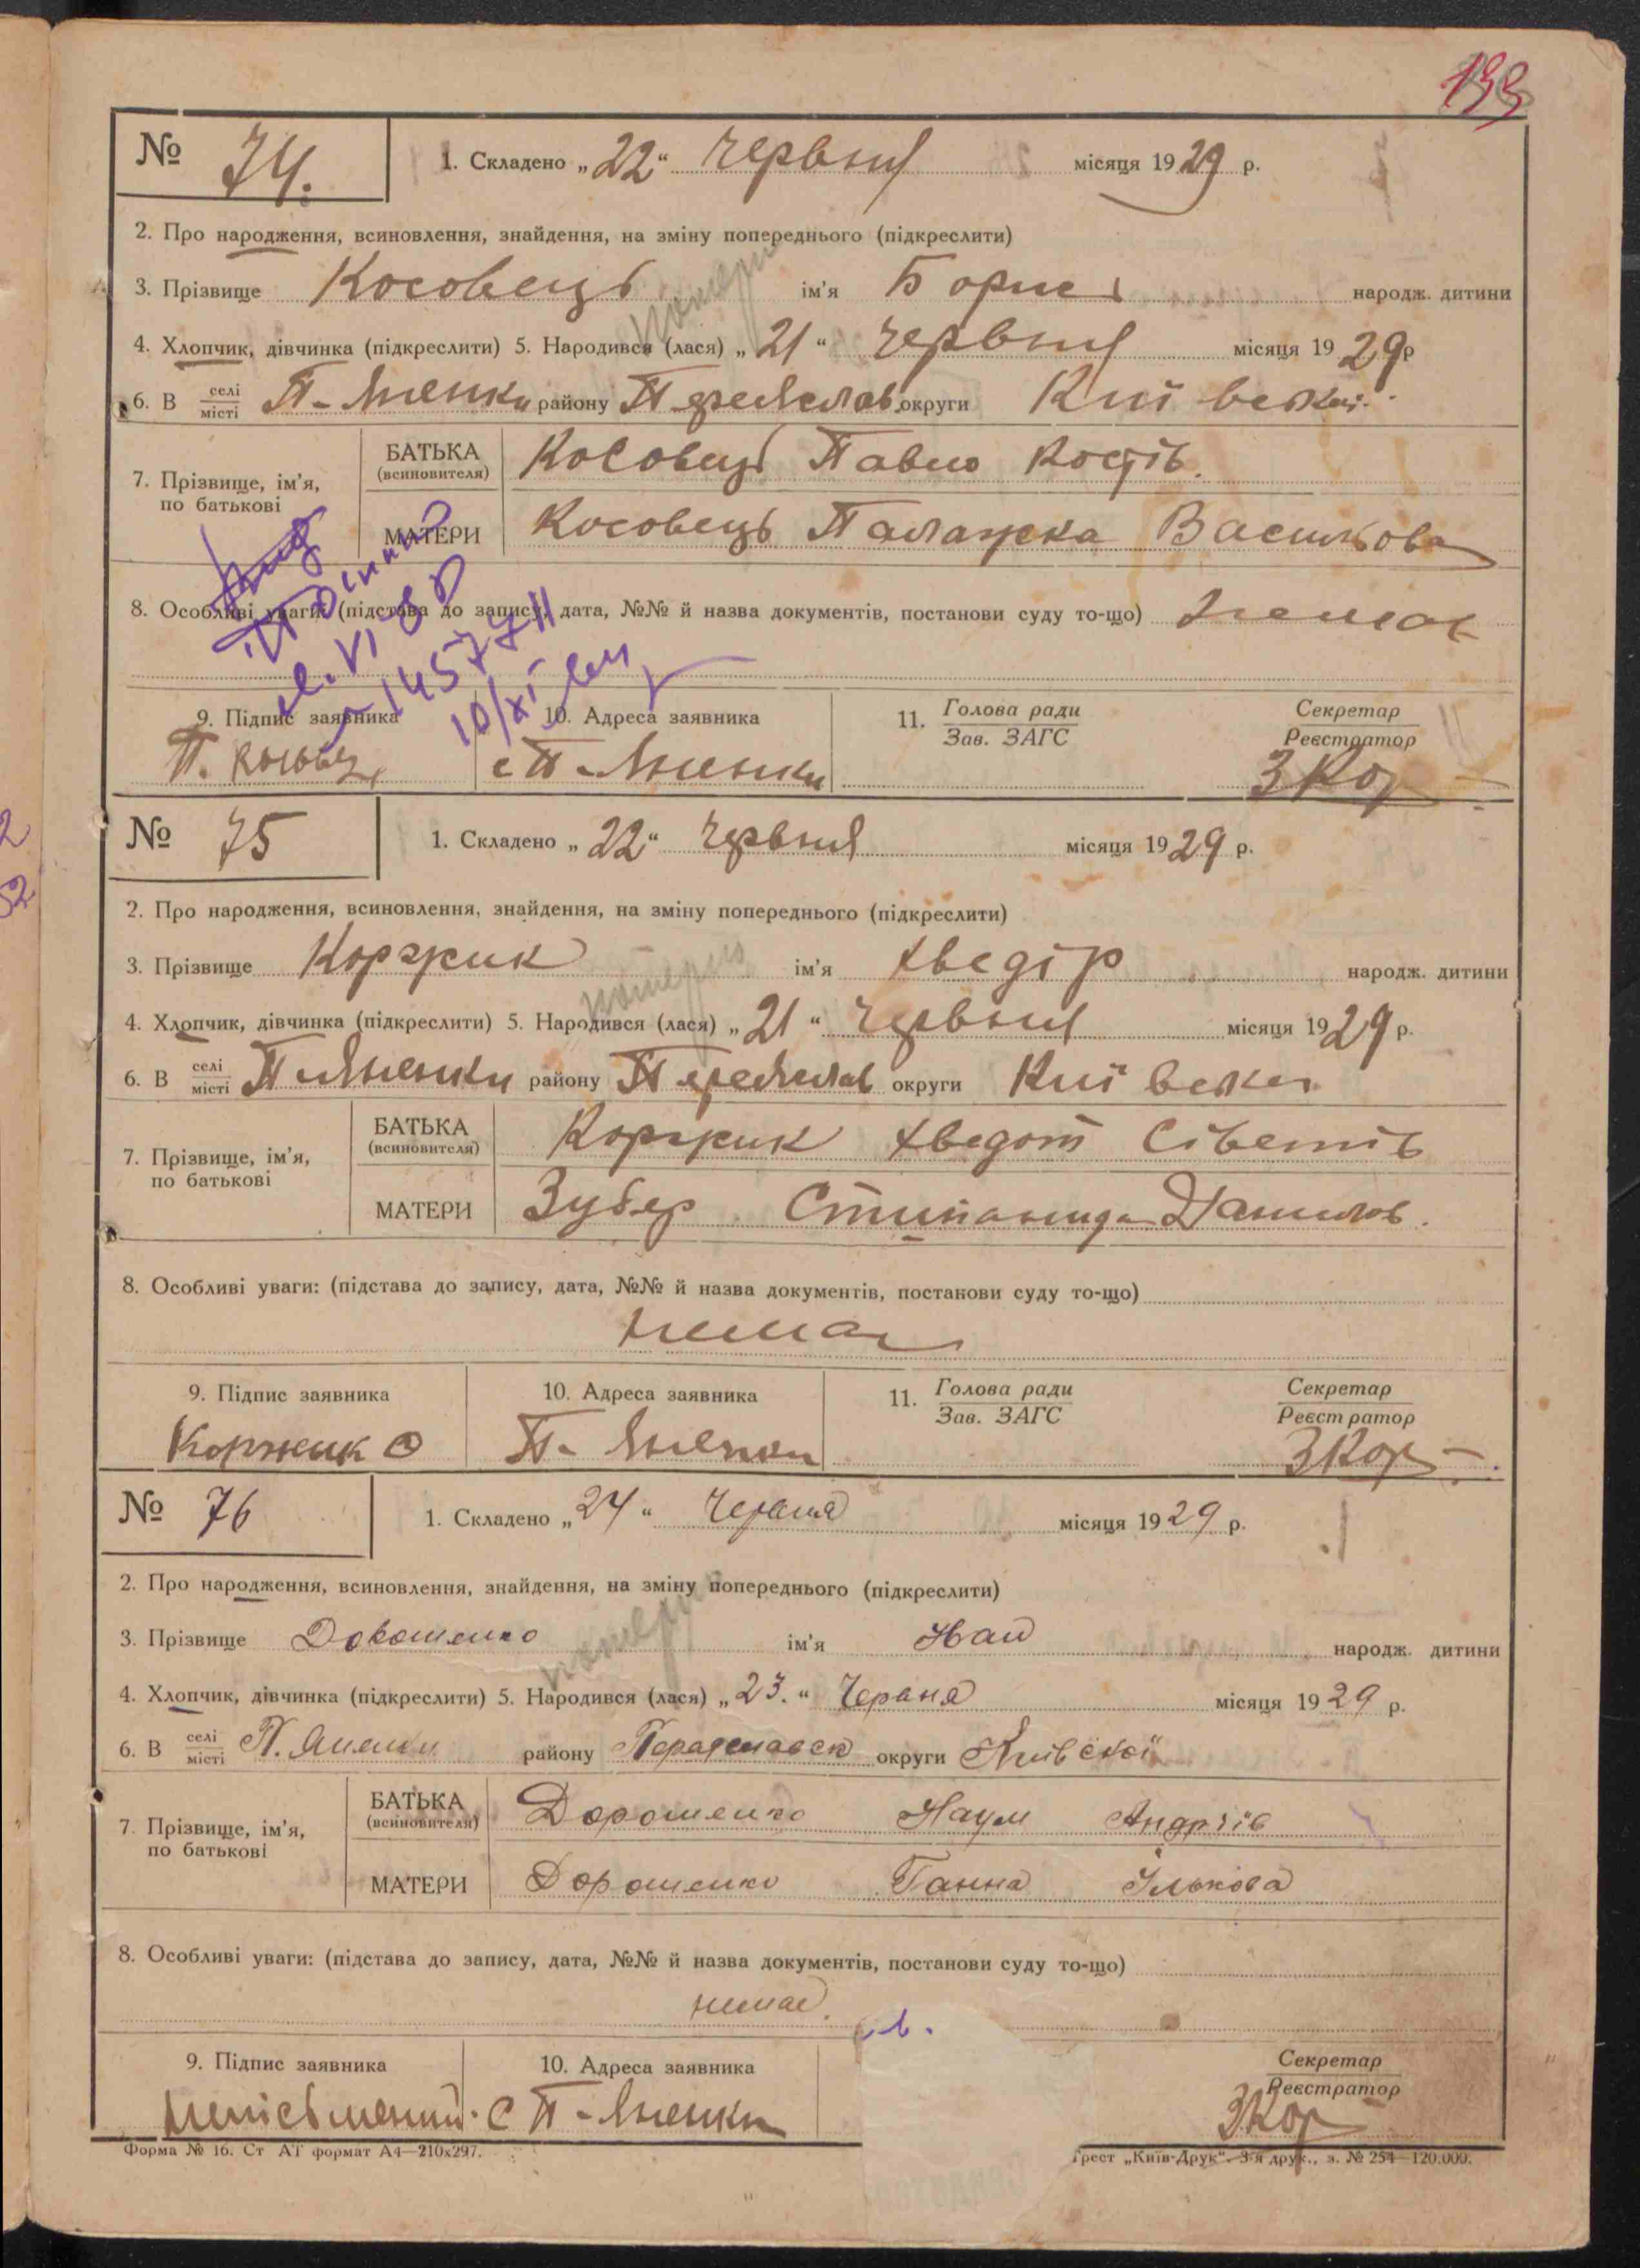 133
№ 74. 1. Складено „22“ червня місяця 1929 р.
2. Про народження, всиновлення, знайдення, на зміну попереднього (підкреслити)
3. Прізвище Косовець ім'я Борис народж. дитини
4. Хлопчик, дівчинка (підкреслити) 5. Народився (лася) „21“ червня місяця 1929 р
6. В селі/місті П-Яненки району Переяслав округи Київськ.
7. Прізвище, ім'я, по батькові
БАТЬКА (всиновителя) Косовець Павло Костів.
МАТЕРИ Косовець Палажка Василькова
8. Особливі уваги: (підстава до запису, дата, №№ й назва документів, постанови суду то-що) немає
9. Підпис заявника 10. Адреса заявника 11. Голова ради/Зав. ЗАГС Секретар/Реєстратор
П. с П-Яненки ЗКор
№ 75 1. Складено „22“ червня місяця 1929 р.
2. Про народження, всиновлення, знайдення, на зміну попереднього (підкреслити)
3. Прізвище Коржик потерпіо ім'я Хведір народж. дитини
4. Хлопчик, дівчинка (підкреслити) 5. Народився (лася) „21“ червня місяця 1929 р.
6. В селі/місті П-Яненки району Переяслав округи Київськ
7. Прізвище, ім'я, по батькові
БАТЬКА (всиновителя) Коржик Хведот
МАТЕРИ Зубер Данилов.
8. Особливі уваги: (підстава до запису, дата, №№ й назва документів, постанови суду то-що)
немає
9. Підпис заявника 10. Адреса заявника 11. Голова ради/Зав. ЗАГС Секретар/Реєстратор
Коржик Ѳ П-Яненки ЗКор
№ 76 1. Складено „24“ Червня місяця 1929 р.
2. Про народження, всиновлення, знайдення, на зміну попереднього (підкреслити)
3. Прізвище Дорошенко ім'я Іван народж. дитини
4. Хлопчик, дівчинка (підкреслити) 5. Народився (лася) „23.“ Червня місяця 1929 р.
6. В селі/місті П. Яненки району Переяславськ округи Київської
7. Прізвище, ім'я, по батькові
БАТЬКА (всиновителя) Дорошенко Наум Андріїв
МАТЕРИ Дорошенко Ганна Ількова
8. Особливі уваги: (підстава до запису, дата, №№ й назва документів, постанови суду то-що)
немає.
9. Підпис заявника 10. Адреса заявника Секретар/Реєстратор
неписьменний. с П-Яненки ЗКор
Форма № 16. Ст АТ формат А4—210х297. Трест „Київ-Друк“. 3-я друк., з. № 254—120.000.